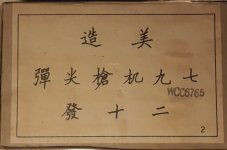 美造
七九机槍尖彈
WCC6765
二十發
2